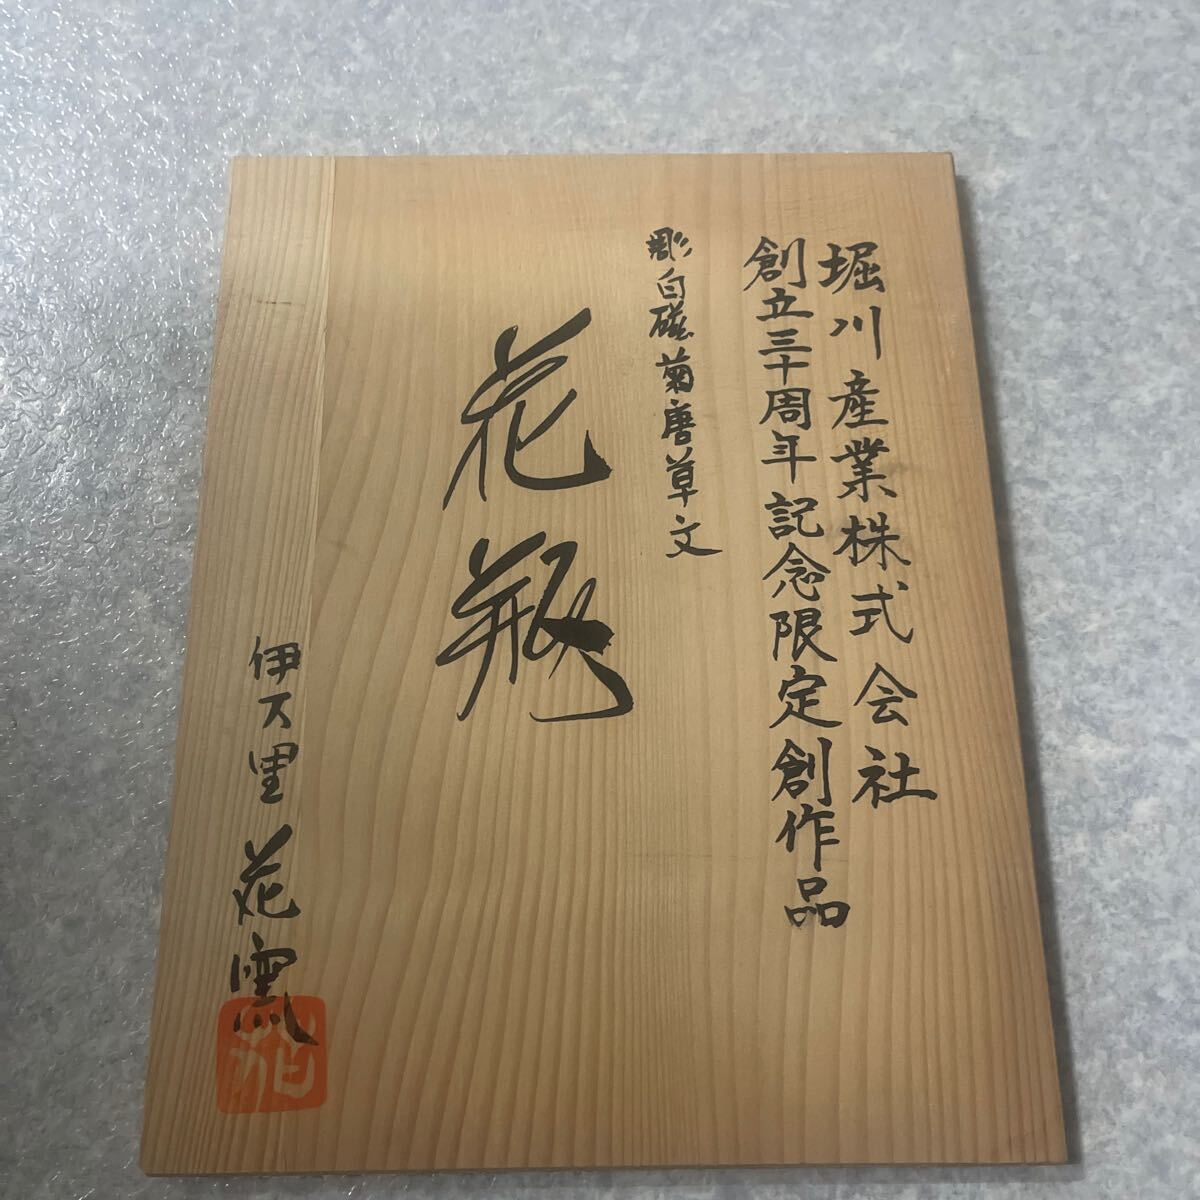 堀川産業株式会社
創立三十周年記念限定創作品
彫白磁菊唐草文
花瓶
伊万里 花窯
花